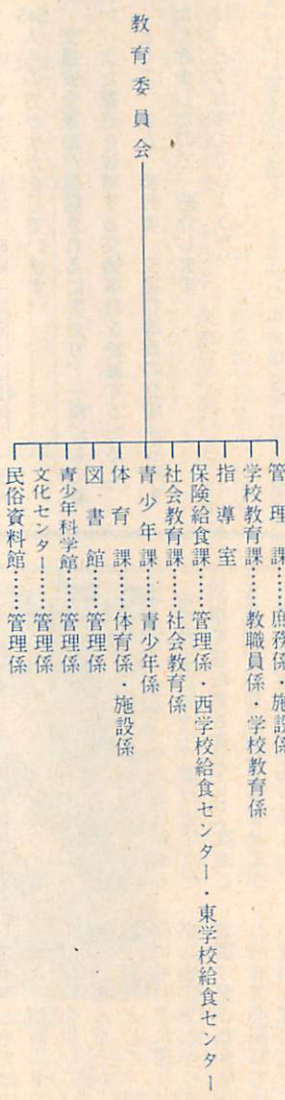 教育委員会
管理課……庶務係・施設係
学校教育課……教職員係・学校教育係
指導室
保険給食課……管理係・西学校給食センター・東学校給食センター
社会教育課……社会教育係
青少年課……青少年係
体育課……体育係・施設係
図書館……管理係
青少年科学館……管理係
文化センター……管理係
民俗資料館……管理係